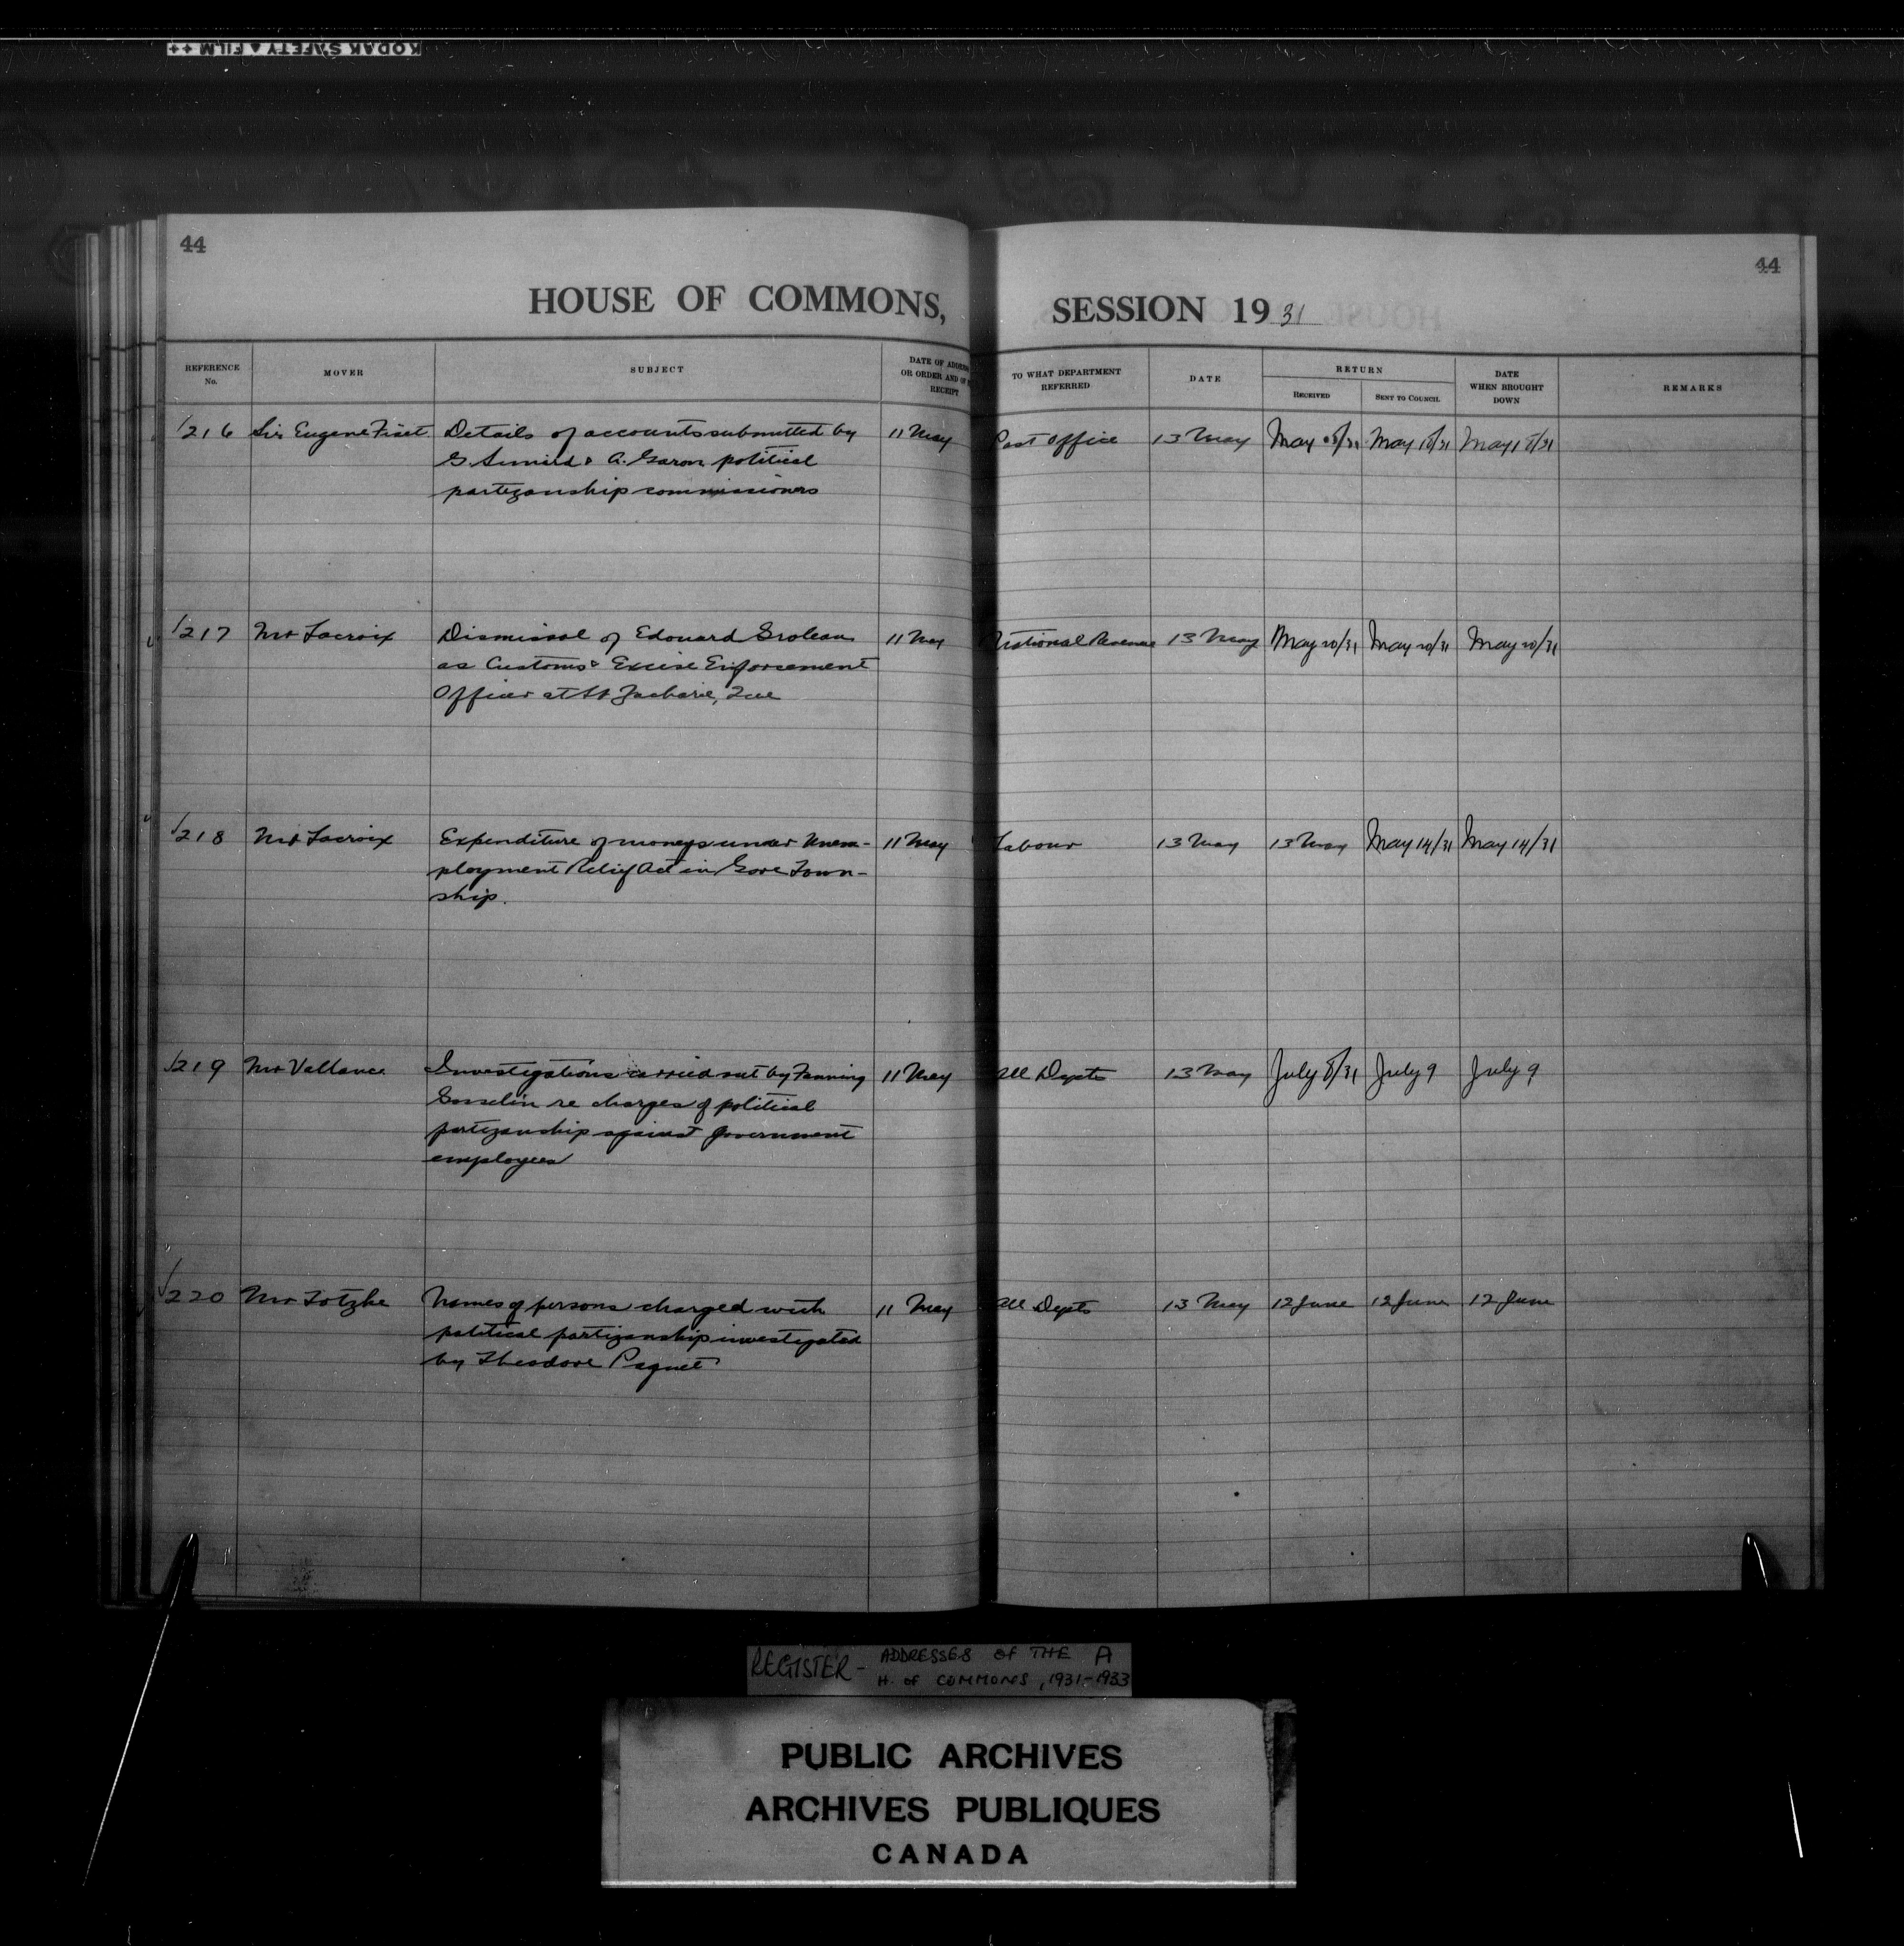 KODAK SAFETY ▲ FILM ++
44
44
HOUSE OF COMMONS, SESSION 19 31
REFERENCE No. MOVER SUBJECT DATE OF OR ORDER AND OF RECEIPT TO WHAT DEPARTMENT REFERRED DATE RETURN RECEIVED SENT TO COUNCIL DATE WHEN BROUGHT DOWN REMARKS
216 Sir Eugene Fiset Details of accounts submitted by 11 May Post Office 13 May May May 18/31 May 18/31
G. & A. Garon political
partizanship commissioners
217 Mr Lacroix Dismissal of Edouard Groleau 11 May National Revenue 13 May May 20/31 May 20/31 May 20/31
as Customs & Excise Enforcement
Officer at St Zacharie, Que
218 Mr Lacroix Expenditure of moneys under Unem- 11 May Labour 13 May 13 May May 14/31 May 14/31
ployment Relief Act in Gore Town-
ship.
219 Mr Vallance Investigations carried out by Fanning 11 May All Depts 13 May July 8/31 July 9 July 9
Gosselin re charges of political
partizanship against Government
employees
220 Mr Totzke Names of persons charged with 11 May All Depts 13 May 12 June 12 June 12 June
political partizanship investigated
by Theodore Paquet
REGISTER - ADDRESSES OF THE A
H. OF COMMONS, 1931-1933
PUBLIC ARCHIVES
ARCHIVES PUBLIQUES
CANADA